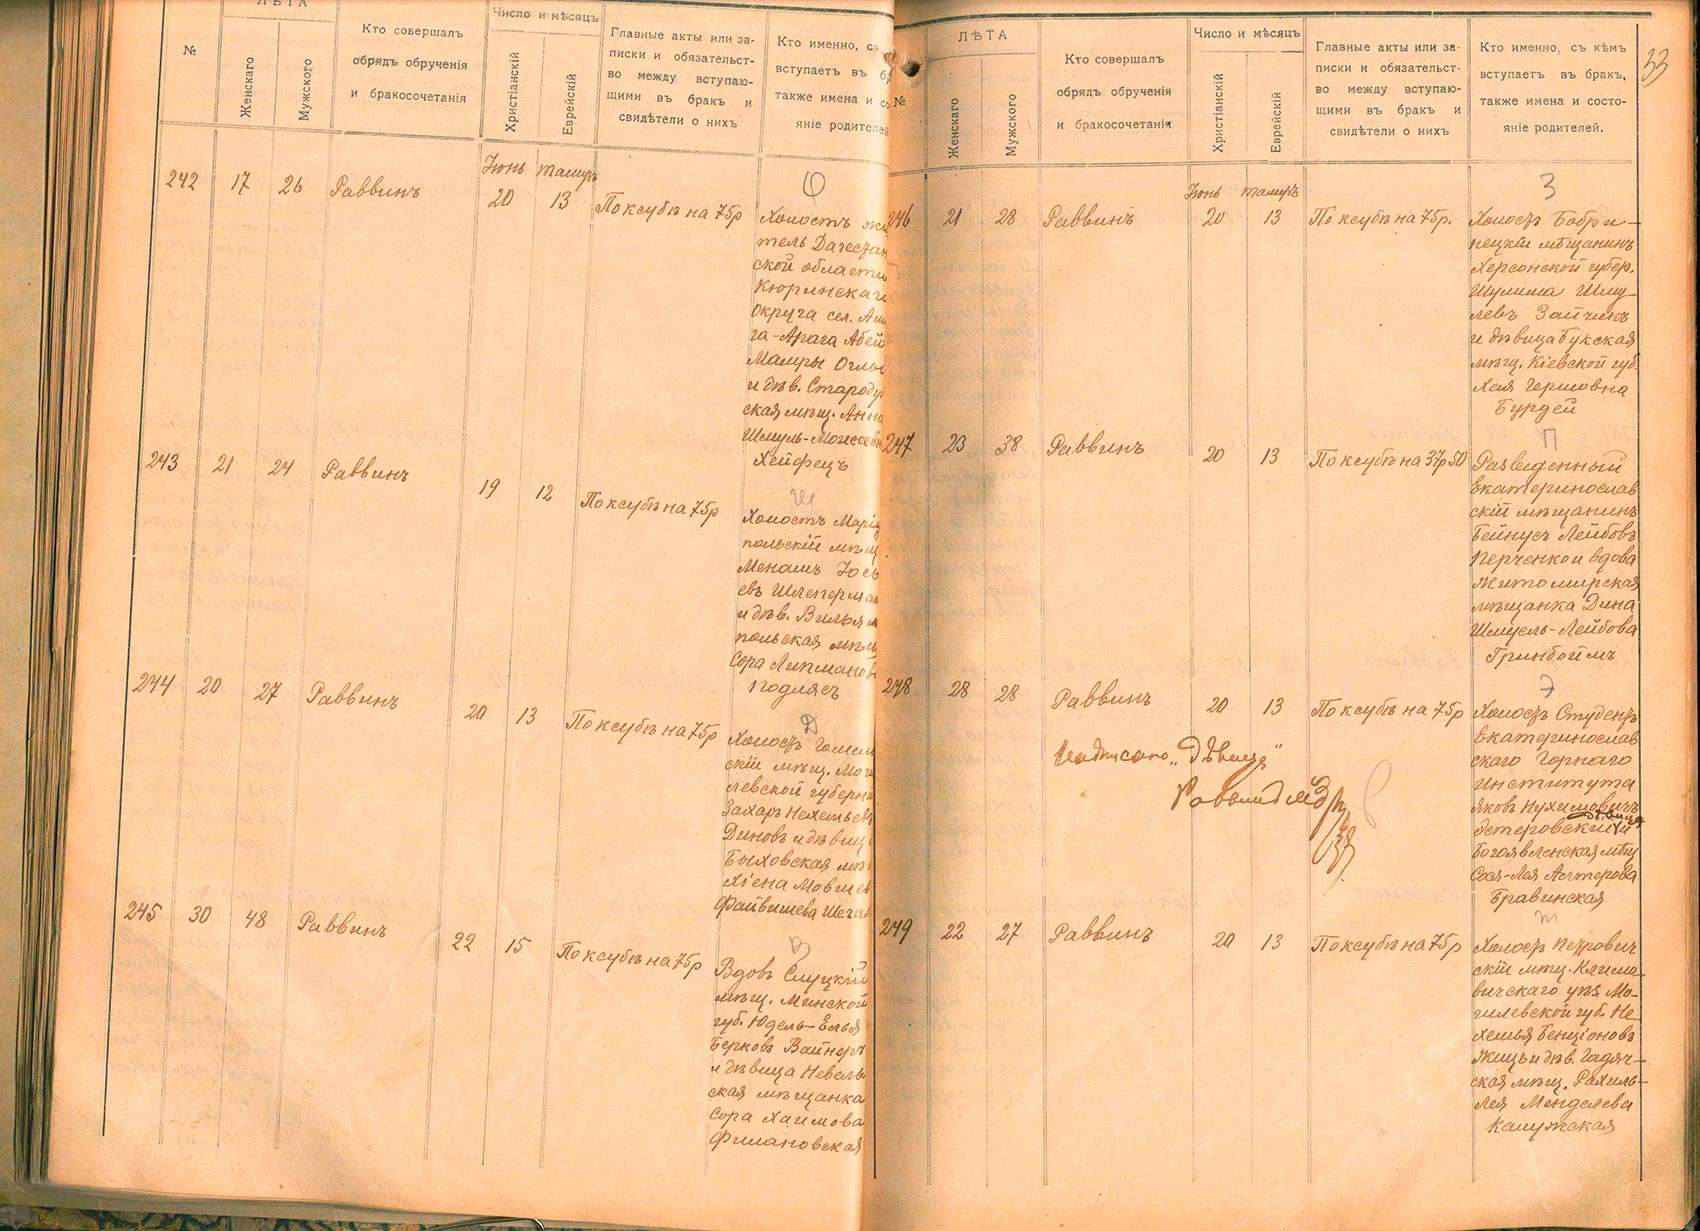 №
ЛѢТА
Женскаго
Мужского
Кто совершалъ
обрядъ обрученія
и бракосочетанія
Число и мѣсяцъ
Христіанскій
Еврейскій
Главные акты или за-
писки и обязательст-
во между вступаю-
щими въ бракъ и
свидѣтели о нихъ
Кто именно, съ
вступаетъ въ бр
также имена и со
яніе родителей
242 17 26 Раввинъ
Іюнь тамузъ
20 13 По ксубѣ на 75р
Ф
Холостъ жи
тель Дагестан
ской области
Кюринскаго
округа сел.
га-Арага
Оглы
и дѣв. Староду
ская мѣщ. Анна
Шмуль-Мовшевн
Хейфецъ
243 21 24 Раввинъ
19 12 По ксубѣ на 75р
Ш
Холостъ Маріу
польскій мѣщ
Менашъ Іось
евъ Шлеперман
и дѣв.
польская мѣщ
Сора Липманов
Подлясъ
244 20 27 Раввинъ
20 13 По ксубѣ на 75р
Д
Холостъ Гомель
скій мѣщ. Моги
левской губерніи
Захаръ Нехемьевъ
Диновъ и дѣвица
Быховская мѣщ
Хіена Мовшев
Файвишева
245 30 48 Раввинъ
22 15 По ксубѣ на 75р
В
Вдовъ Слуцкій
мѣщ. Минской
губ. Юдель-Елья
Берковъ Вайнеръ
и дѣвица Невель
ская мѣщанка
Сора Хаимова
Филановская
33
№
ЛѢТА
Женскаго
Мужского
Кто совершалъ
обрядъ обрученія
и бракосочетанія
Число и мѣсяцъ
Христіанскій
Еврейскій
Главные акты или за-
писки и обязательст-
во между вступаю-
щими въ бракъ и
свидѣтели о нихъ
Кто именно, съ кѣмъ
вступаетъ въ бракъ,
также имена и состо-
яніе родителей.
Іюнь тамузъ
246 21 28 Раввинъ 20 13 По ксубѣ на 75р.
З
Холостъ Бобри-
нецкій мѣщанинъ
Херсонской губер.
Шулима Шму-
левъ Зайчикъ
и дѣвица Букская
мѣщ. Кіевской губ.
Хая Гершовна
Бурдей
247 23 38 Раввинъ 20 13 По ксубѣ на 37р50
П
Разведенный
Екатеринослав
скій мѣщанинъ
Бейнусъ Лейбовъ
Перченко и вдова
Житомирская
мѣщанка Дина
Шмуель-Лейбова
Гринбоймъ
248 28 28 Раввинъ 20 13 По ксубѣ на 75р
Э
Холостъ Студентъ
Екатеринослав
скаго Горнаго
Института
Яковъ Нухимовичъ
дѣвица
Эстеровскій и
Богоявленская мѣщ
Сося-Лея
Бравинская
„Дѣвица“
Раввинъ
249 22 27 Раввинъ 20 13 По ксубѣ на 75р
Ж
Холостъ Петрович
скій мѣщ. Клима-
вичскаго уѣз. Мо-
гилевской губ. Не-
хемья Бенціоновъ
Жицъ и дѣв. Гадяч-
ская мѣщ. Рахиль-
Лея Менделева
Калужская